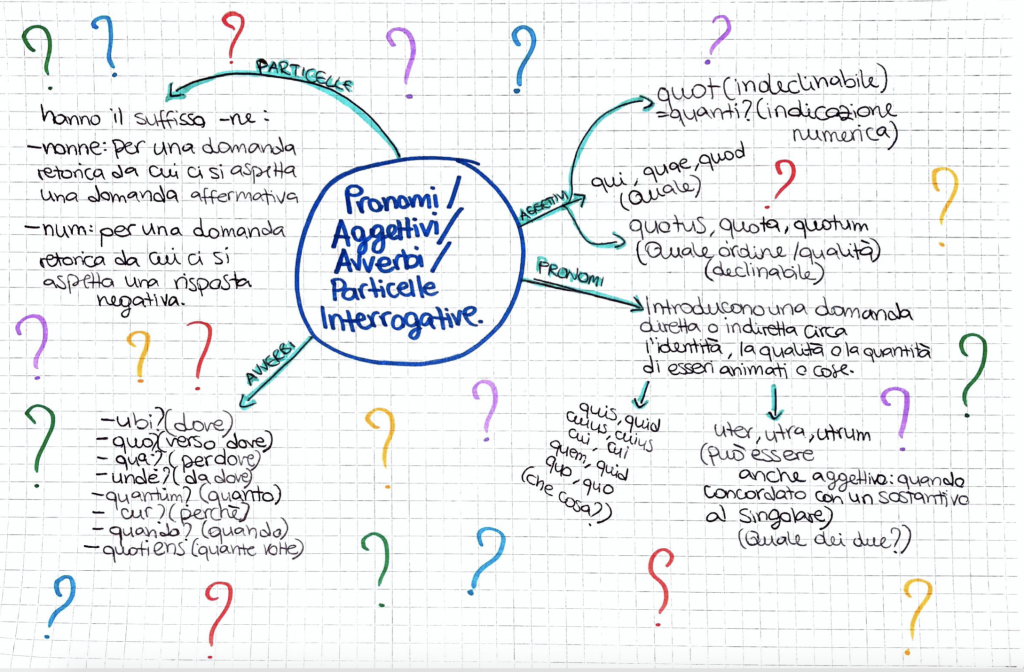 Pronomi /
Aggettivi /
Avverbi /
Particelle
Interrogative.
PARTICELLE
hanno il suffisso -ne:
-nonne: per una domanda
retorica da cui ci si aspetta
una domanda affermativa
-num: per una domanda
retorica da cui ci si
aspetta una risposta
negativa.
AGGETTIVI
quot (indeclinabile)
=quanti? (indicazione
numerica)
qui, quae, quod
(Quale)
quotus, quota, quotum
(Quale ordine/qualità)
(declinabile)
PRONOMI
Introducono una domanda
diretta o indiretta circa
l'identità, la qualità o la quantità
di esseri animati o cose.
quis, quid
cuius, cuius
cui, cui
quem, quid
quo, quo
(che cosa?)
uter, utra, utrum
(può essere
anche aggettivo: quando
concordato con un sostantivo
al singolare)
(Quale dei due?)
AVVERBI
-ubi? (dove)
-quo? (verso dove)
-qua? (per dove)
-unde? (da dove)
-quantum? (quanto)
- cur? (perchè)
-quando? (quando)
-quotiens (quante volte)